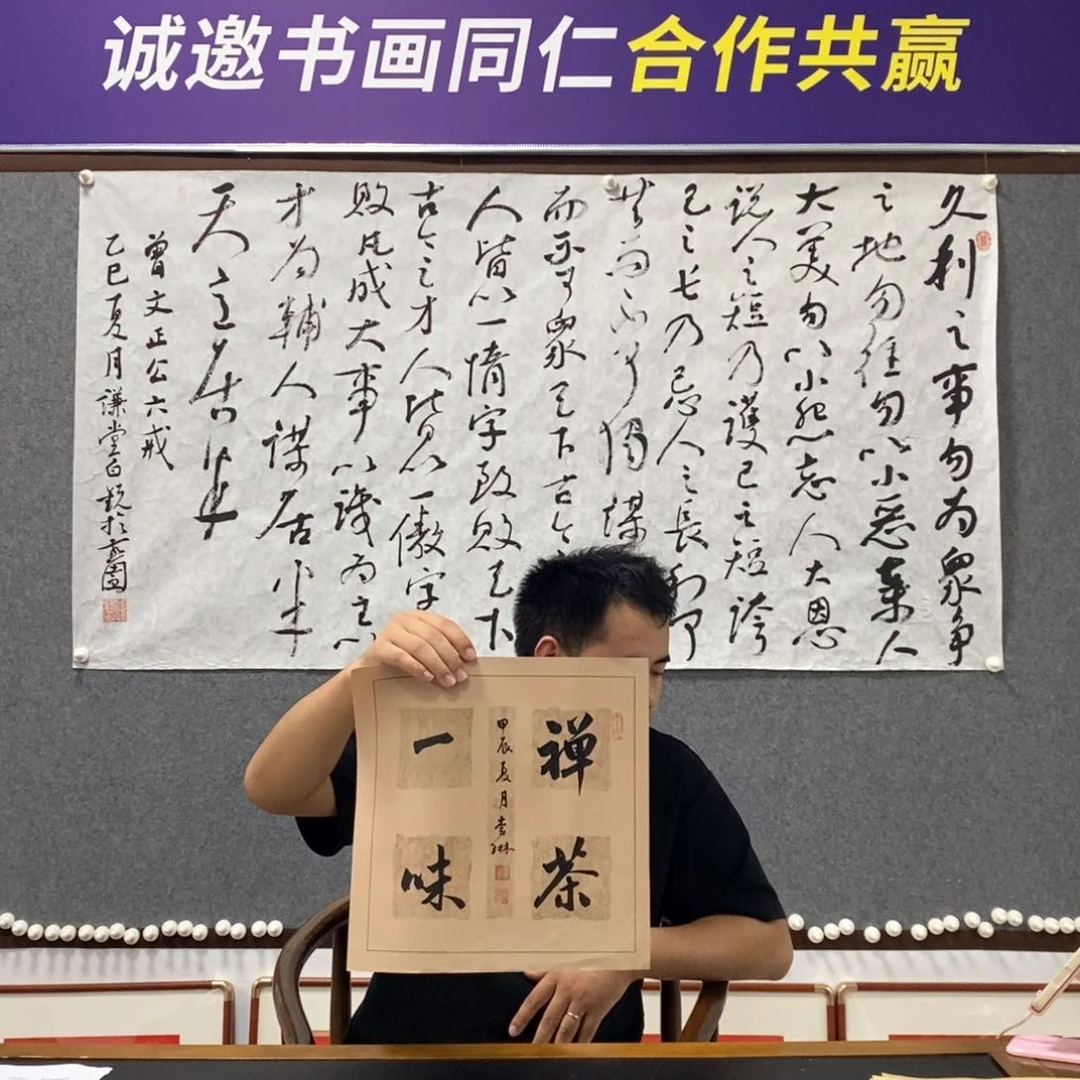 诚邀书画同仁合作共赢
久利之事勿为衆争
之地勿往勿以小惡棄人
大美勿以小怨忘人大恩
说人之短乃護己之短誇
己之长乃忌人之長利可
共而不可獨謀
而不可衆天下古今
人皆以一惰字致败天下
古今之才人皆以一傲字
败凡成大事以識为主以
才为輔人謀居半
天意居半
曾文正公六戒
乙巳夏月謙堂
禅茶
甲辰夏月
一味